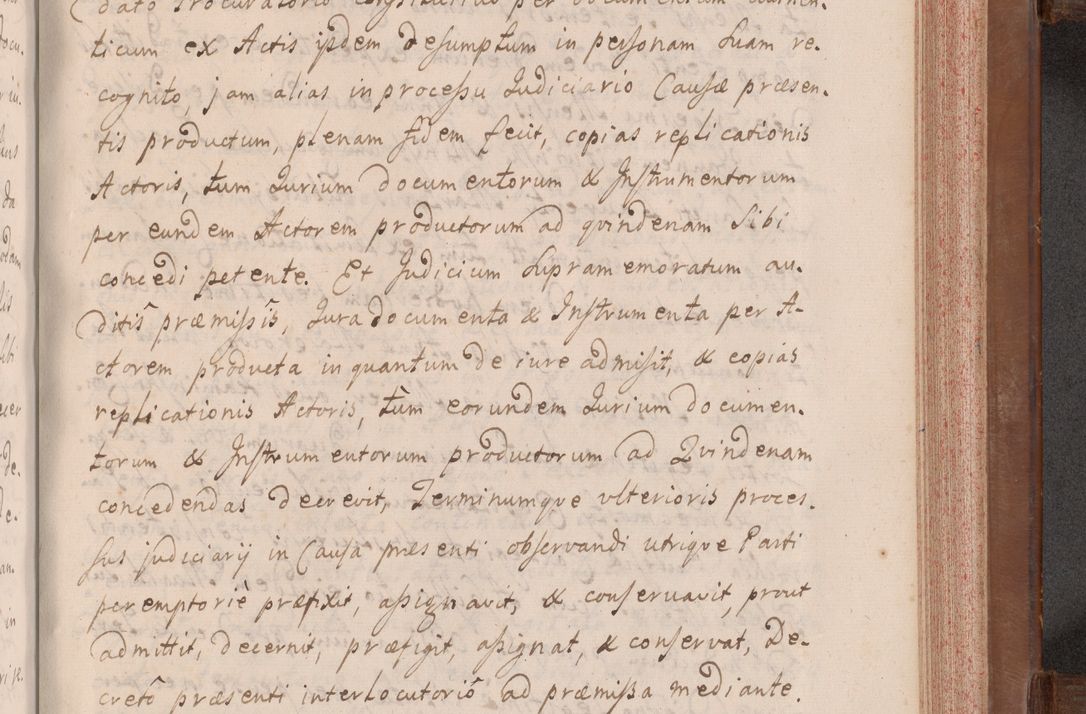 dato Procuratorio constitutus per Documentum authen-
ticum ex Actis ijsdem desumptum in personam Suam re.
cognito, jam alias in processu Judiciario Causæ præsen-
tis productum, plenam fidem fecit, copias replicationis
Actoris, tum Jurium documentorum & Instrumentorum
per eundem Actorem productorum ad qvindenam Sibi
concedi petente. Et Judicium Supramemoratum au.
ditis præmissis, Jura documenta & Instrumenta per A-
ctorem producta in quantum de iure admisit, & copias
replicationis Actoris, tum eorundem Jurium documen.
torum & Instrumentorum productorum ad Qvindenam
concedendas decrevit, Terminumqve ulterioris proces.
sus judiciarij in Causa præsenti observandi utriqve Parti
peremptorie præfixit, assignavit, & conservavit, prout
admittit, decernit, præfigit, assignat, & conservat, De-
creto præsenti interlocutorio ad præmissa mediante.